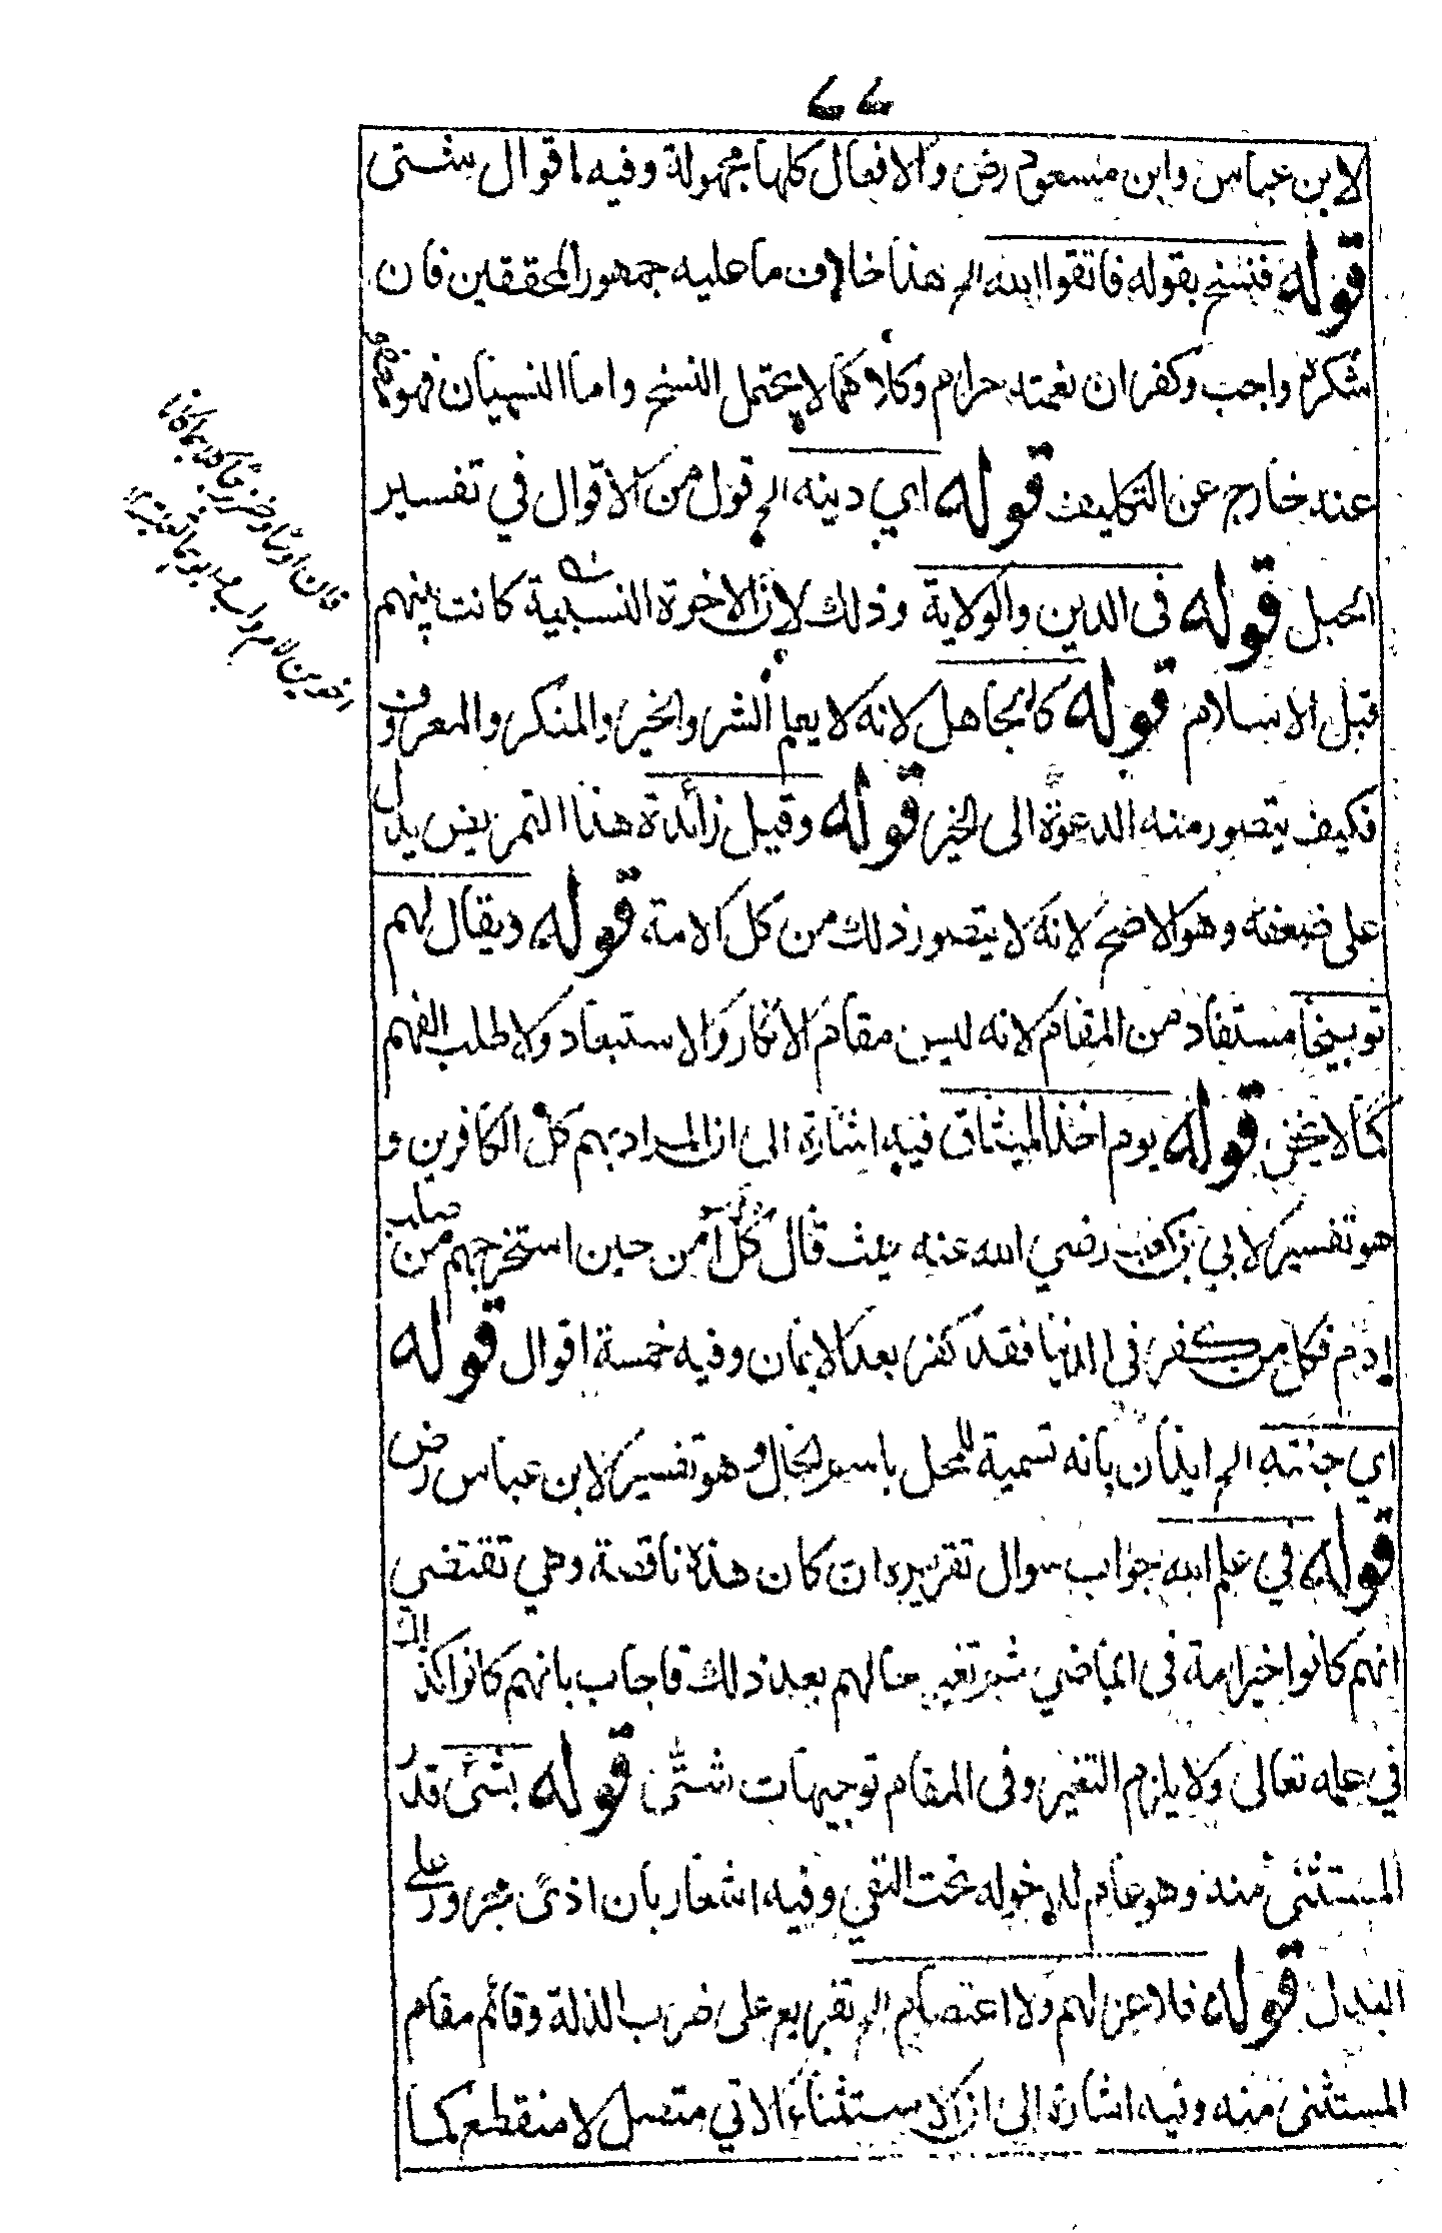 ٧٧
لابن عباس وابن مسعود رض والافعال كلها مجهولة وفيه اقوال شتى
قوله فنسخ بقوله فاتقوا الله الخ هذا خلاف ما عليه جمهور المحققين فان
شكره واجب وكفران نعمته حرام وكلاهما لا يحتمل النسخ واما النسيان فهو
عند خارج عن التكليف قوله اي دينه الخ قول من الاقوال في تفسير
الحبل قوله فى الدين والولاية وذلك لان الاخوة النسبية كانت بينهم
قبل الاسلام قوله كالجاهل لانه لا يعلم الشر والخير والمنكر والمعروف
فكيف يتصور منه الدعوة الى الخير قوله وقيل زائدة هذا التمريض يدل
على ضعفه وهو الاضح لانه لا يتصور ذلك من كل الامة قوله ويقال لهم
توبيخا مستفاد من المقام لانه ليس مقام الانكار والاستبعاد ولا طلب الفهم
كما لا يخفى قوله يوم اخذ الميثاق فيه اشارة الى ان المراد بهم كل الكافرين و
هو تفسير لابي بن كعب رضي الله عنه حيث قال كل آمن حين استخرجهم من صلب
ادم فكل من كفر فى الدنيا فقد كفر بعد الايمان وفيه خمسة اقوال قوله
اي جنته الخ ايذان بانه تسمية للمحل باسم الحال وهو تفسير لابن عباس رض
قوله في علم الله جواب سوال تقريره ان كان هذه ناقصة وهي تقتضي
انهم كانوا خير امة فى الماضي ثم تغير حالهم بعد ذلك فاجاب بانهم كانوا كذالك
في علمه تعالى ولا يلزم التغير وفى المقام توجيهات شتى قوله بشئ قدر
المستثنى منه وهو عام لدخوله تحت النفي وفيه اشعار بان اذى مجرور على
البدل قوله فلا عز لهم ولا اعتصام الخ تفريع على ضرب الذلة وقائم مقام
المستثنى منه وفيه اشارة الى ان الاستثناء الاتي متصل لا منقطع كما